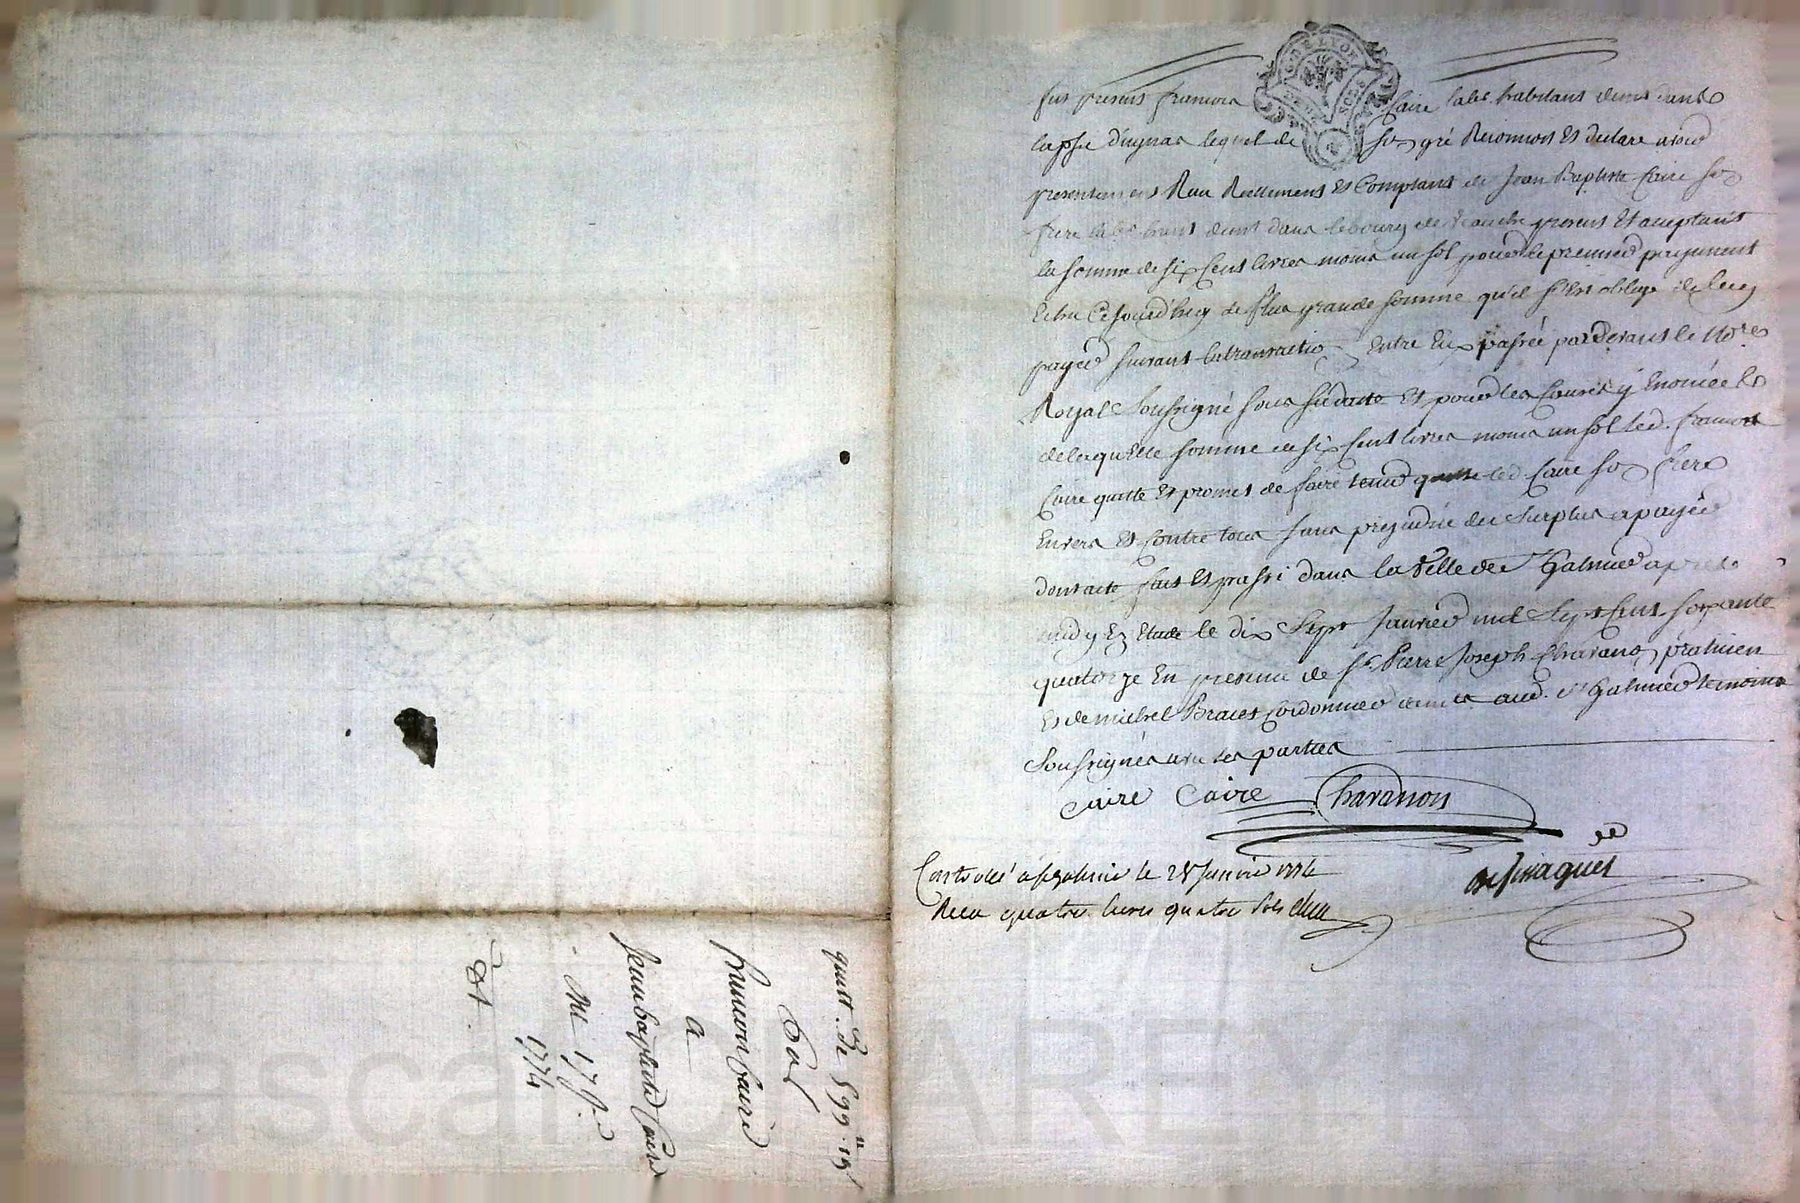 G. DE LYON
fut present francois Caire habitant demt dans
laquel de son gré Reconnois Et declare avoir
presentement Recu Reellement Et Comptant de Jean Baptiste Caire son
frere demt dans le bourg de present Et acceptant
la somme de six Cent livres moins un sol pour le premier payement
Echu Ce jourd'huy de plus grande somme qu'il s'Est obligé de luy
payer suivant la transaction Entre Eux passée pardevant le No.re
Royal soussigné sous sa datte Et pour les Causes y Enoncées
de laquelle somme de six Cent livres moins un sol led. francois
Caire quitte Et promet de faire tenir quitte led. Caire son frere
Envers Et Contre tous sans prejudice du surplus a payer
dont acte fait Et passé dans la ville de St Galmier apres
midy En Etude le dix sept Janvier mil sept Cent soixante
quatorze En presence de Sr. Pierre Joseph Charanon praticien
Et de michel Cordonnier aud. St Galmier temoins
Soussignés avec les parties
Caire Caire Charanon
Controllé a St galmier le 28 Janvier 1774
Recu quatre livres quatre sols
quitt. de 599 ₶ 19 s
Par
francois Caire
a
Jean baptiste Caire
Du 17 J.er
1774